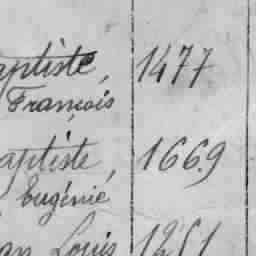 aptiste, 1477
François
aptiste, 1669
Eugénie
an Louis 1251